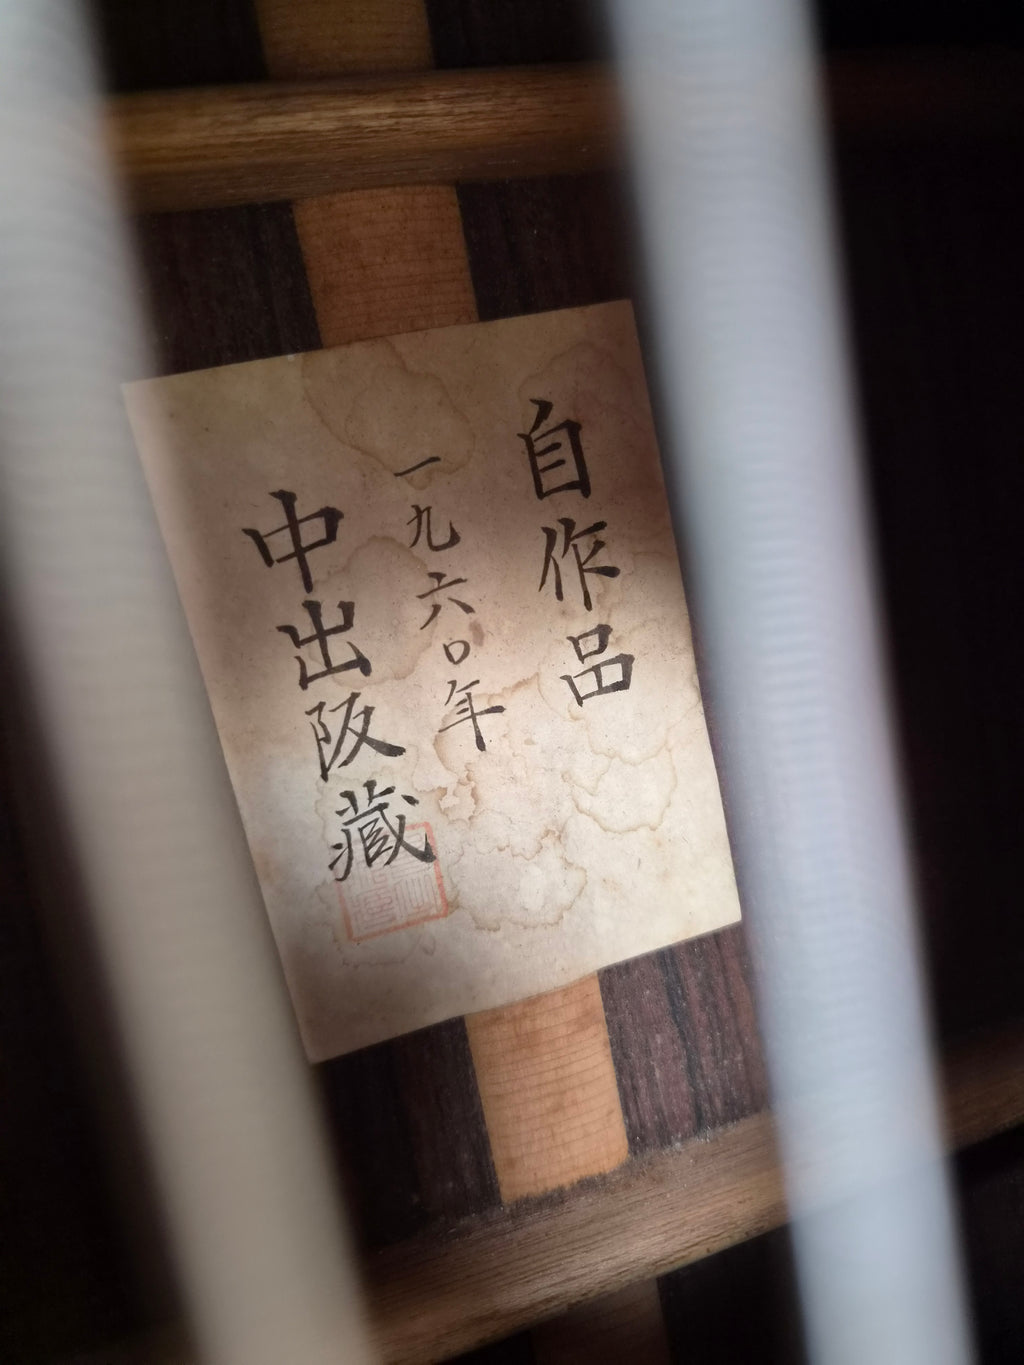 自作品
一九六〇年
中出阪藏